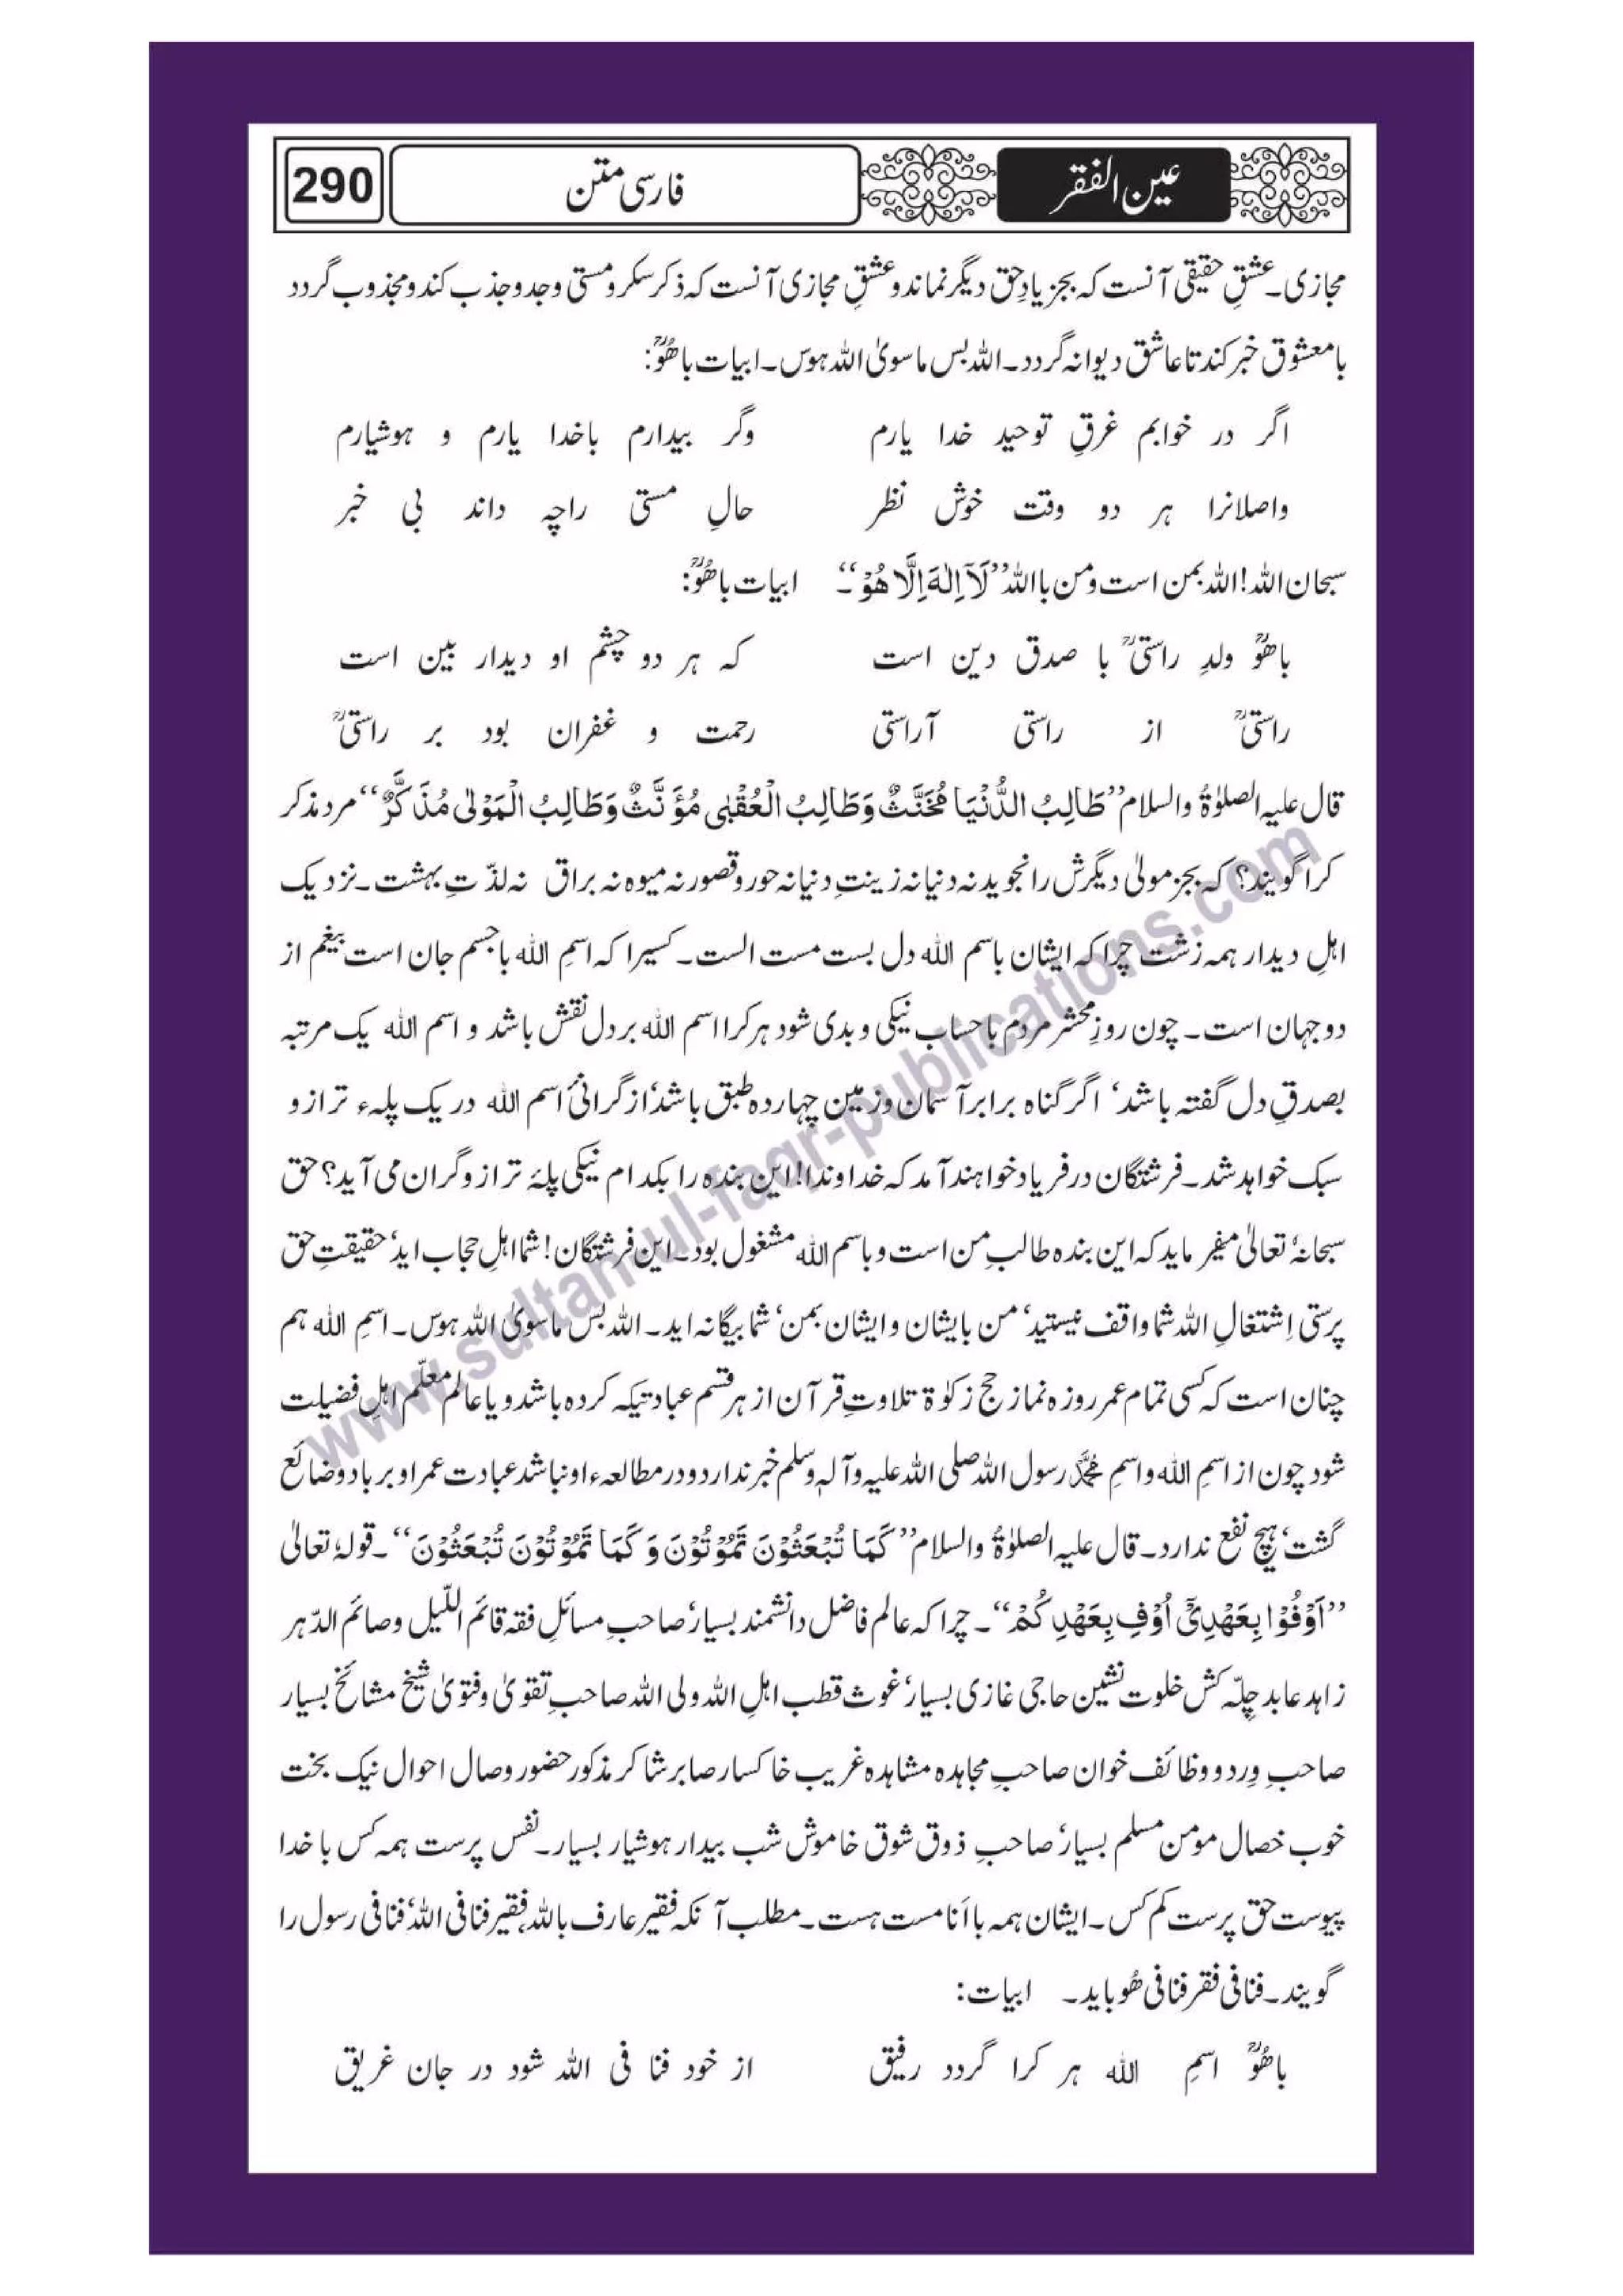 عین الفقر
فارسی متن
290
مجازی۔ عشقِ حقیقی آنست کہ بجز یادِ حق دیگر نماند و عشقِ مجازی آنست کہ ذکر سکر و مستی وجد و جذب کند و مجذوب گردد
با معشوق خبر کند تا عاشق دیوانہ گردد۔ اللہ بس ماسویٰ اللہ ہوس۔ ابیات باھُوؒ:
اگر در خوابم غرقِ توحید خدا یارم وگر بیدارم باخدا یارم و ہوشیارم
واصلانرا ہر دو وقت خوش نظر حالِ مستی راچہ داند بی خبر
سبحان اللہ! اللہ بمن است و من با اللہ ’’لَآ اِلٰہَ اِلَّا ھُوْ‘‘۔ ابیات باھُوؒ:
باھُوؒ ولدِ راستیؒ با صدق دین است کہ ہر دو چشم او دیدار بین است
راستیؒ از راستی آراستی رحمت و غفران بود بر راستیؒ
قال علیہ الصلوٰۃ والسلام ’’طَالِبُ الدُّنْیَا مُخَنَّثٌ وَ طَالِبُ الْعُقْبٰی مُؤَنَّثٌ وَ طَالِبُ الْمَوْلٰی مُذَکَّرٌ‘‘ مرد مذکر
کرا گویند؟ کہ بجز مولیٰ دیگرش را نجوید نہ دنیا نہ زینتِ دنیا نہ حور و قصور نہ میوہ نہ براق نہ لذّتِ بہشت۔ نزدیک
اہلِ دیدار ہمہ زشت چرا کہ ایشان باسم اللہ دل بست مست الست۔ کسیرا کہ اسمِ اللہ باجسم جان است بیغم از
دو جہان است۔ چون روزِ محشر مردم باحساب نیکی و بدی شود ہر کرا اسم اللہ بر دل نقش باشد و اسم اللہ یک مرتبہ
بصدقِ دل گفتہ باشد‘ اگر گناہ برابر آسمان و زمین چہاردہ طبق باشد‘ از گرانیٔ اسم اللہ در یک پلہء ترازو
سبک خواہد شد۔ فرشتگان در فریاد خواہند آمد کہ خداوندا! این بندہ را بکدام نیکی پلۂ ترازو گران می آید؟ حق
سبحانہٗ تعالیٰ میفرماید کہ این بندہ طالبِ من است و باسم اللہ مشغول بود۔ این فرشتگان! شما اہلِ حجاب اید‘ حقیقتِ حق
پرستی اِشتغالِ اللہ شما واقف نیستید‘ من بایشان و ایشان بمن‘ شما بیگانہ اید۔ اللہ بس ماسویٰ اللہ ہوس۔ اسمِ اللہ ہم
چنان است کہ کسی تمام عمر روزہ نماز حج زکوٰۃ تلاوتِ قرآن از ہر قسم عبادتیکہ کردہ باشد و یا عالم معلّم اہلِ فضیلت
شود چون از اسمِ اللہ و اسمِ محمدؐ رسول اللہ صلی اللہ علیہ وآلہٖ وسلم خبر ندارد و در مطالعہء او نباشد عبادت عمر او برباد و ضائع
گشت‘ ہیچ نفع ندارد۔ قال علیہ الصلوٰۃ والسلام ’’کَمَا تُبْعَثُوْنَ تَمُوْتُوْنَ وَ کَمَا تَمُوْتُوْنَ تُبْعَثُوْنَ‘‘۔ قولہٗ تعالیٰ
’’اَوْفُوْا بِعَھْدِیْٓ اُوْفِ بِعَھْدِکُمْ‘‘۔ چرا کہ عالم فاضل دانشمند بسیار‘ صاحبِ مسائلِ فقہ قائم اللّیل و صائم الدّہر
زاہد عابد چِلّہ کش خلوت نشین حاجی غازی بسیار‘ غوث قطب اہلِ اللہ ولی اللہ صاحبِ تقویٰ و فتویٰ شیخ مشائخ بسیار
صاحبِ وِرد و وظائف خوان صاحبِ مجاہدہ مشاہدہ غریب خاکسار صابر شاکر مذکور حضور وصال احوال نیک بخت
خوب خصال مومن مسلم بسیار‘ صاحبِ ذوق شوق خاموش شب بیدار ہوشیار بسیار۔ نفس پرست ہمہ کس باخدا
پیوست حق پرست کم کس۔ ایشان ہمہ با اَنا مست ہست۔ مطلب آنکہ فقیر عارف باللہ، فقیر فنا فی اللہ‘ فنا فی رسول را
گویند۔ فنا فی فقر فنا فی ھُو باید۔ ابیات:
باھُوؒ اسمِ اللہ ہر کرا گردد رفیق از خود فنا فی اللہ شود در جان غریق
www.sultan-ul-faqr-publications.com